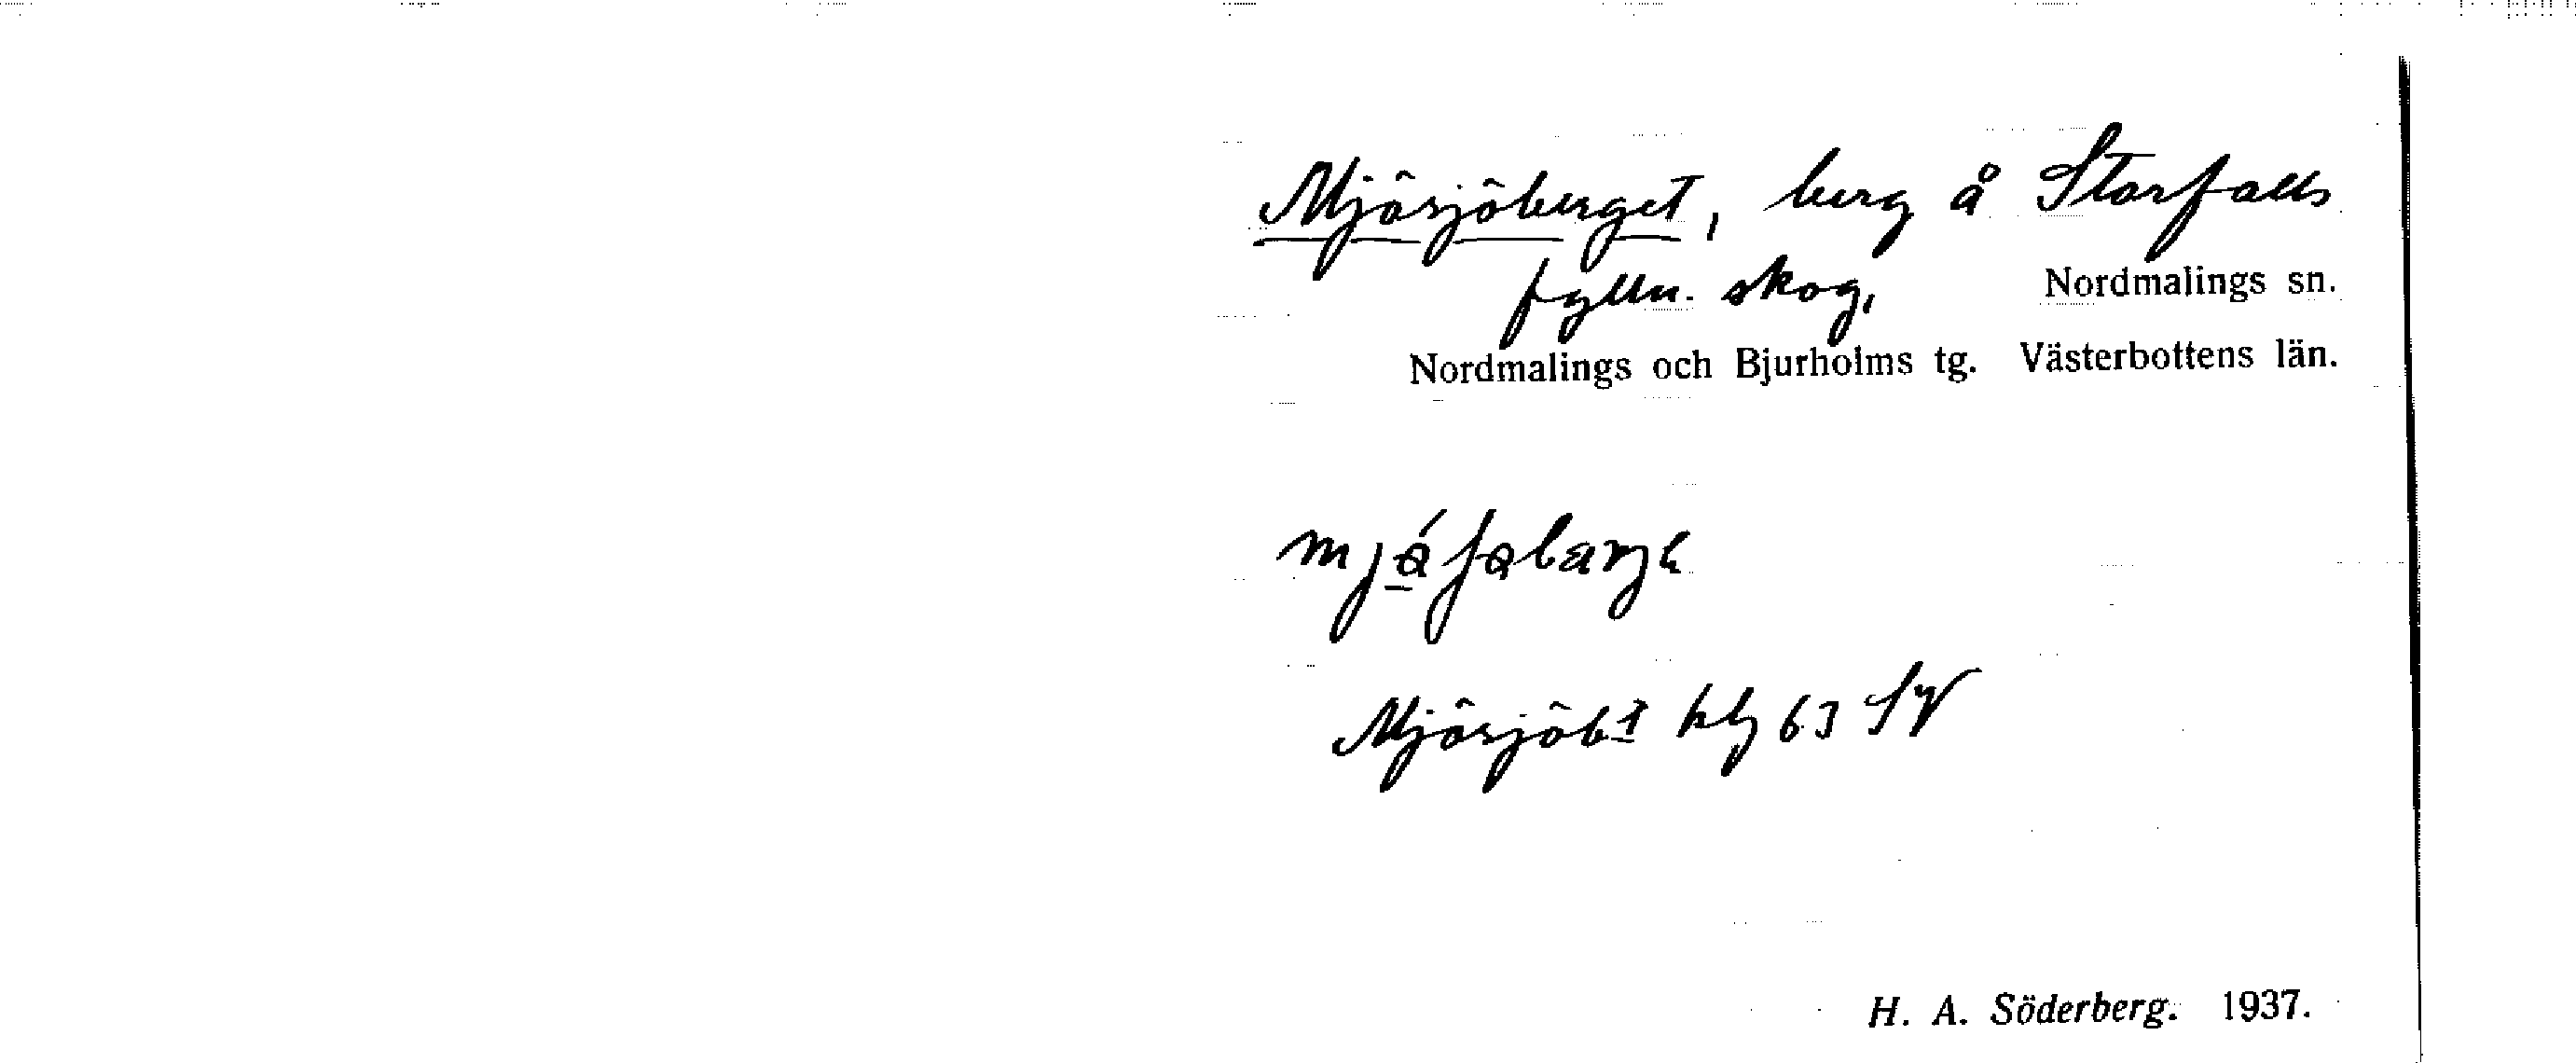 Mjösjöberget, berg å Storfalls
fgtn. skog, Nordmalings sn.
Nordmalings och Bjurholms tg. Västerbottens län.
Mjösjöbt 63 SV
H. A. Söderberg. 1937.